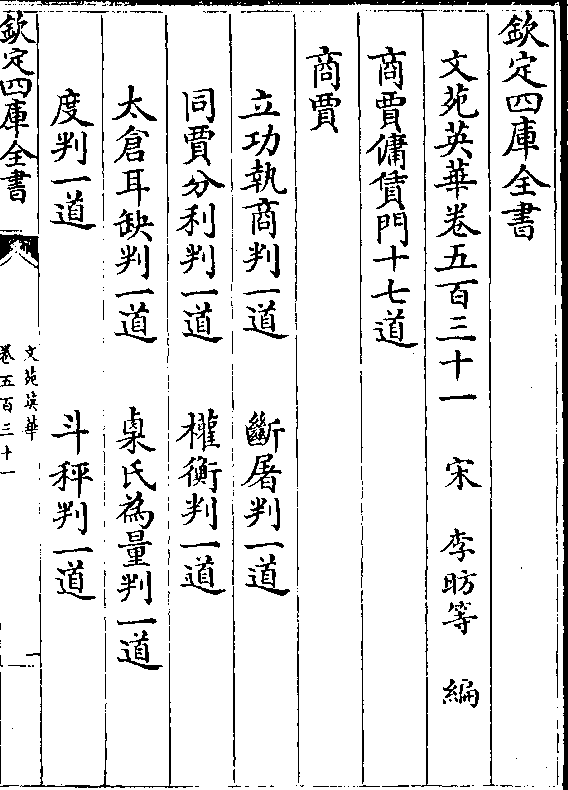 欽定四庫全書
文苑英華卷五百三十一 宋 李昉等 編
商賈傭賃門十七道
商賈
立功執商判一道 斷屠判一道
同賈分利判一道 權衡判一道
太倉耳缺判一道 㮚氏為量判一道
度判一道 斗秤判一道
欽定四庫全書
文苑英華
卷五百三十一
一